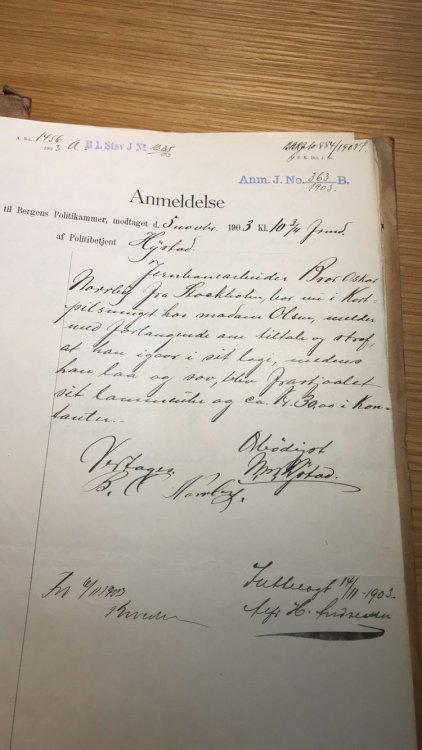 A. No. 1456
1903 A B. L. Stav J. No
Anm. J. No. 363 B.
1903.
Anmeldelse
til Bergens Politikammer, modtaget d. 5 novbr. 1903 Kl. 10 3/4 Fmd.
af Politibetjent Hystad.
Jernbanearbeider Bror Oskar
Norrby fra Stockholm, bor nu i Kort-
pilsmuget hos madam Olsen, melder
med forlangende om tiltale og straf,
at han igaar i sit logi, medens
han laa og sov, blev frastjaalet
sit lommeuhr og ca. Kr. 30,00 i Kon-
tanter.
Ærbødigst
Vedtages
Hystad.
B. O. Norrby.
14/11-1903.